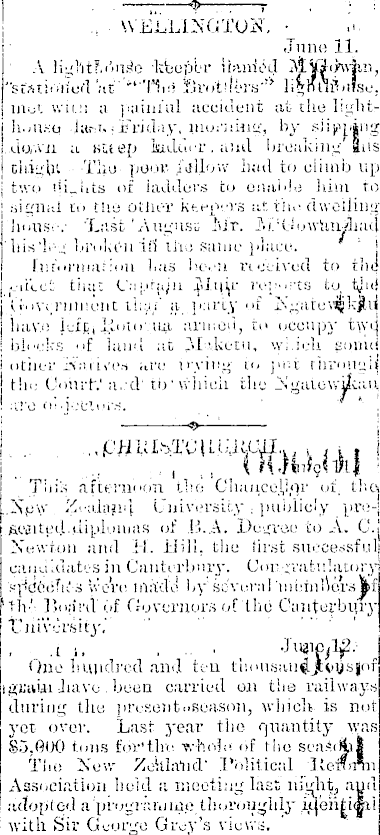 WELLINGTON.
June 11.
A lighthouse keeper named M'Gowan,
stationed at "The Brothers" lighthouse,
met with a painful accident at the light-
house last Friday, morning, by slipping
down a steep ladder, and breaking his
thigh. The poor fellow had to climb up
two flights of ladders to enable him to
signal to the other keepers at the dwelling
house. Last August Mr. M'Gowan had
his leg broken in the same place.
Information has been received to the
effect that Captain Muir reports to the
Government that a party of
have left Rotorua armed, to occupy two
blocks of land at Maketu, which some
other Natives are trying to put through
the Court, and to which the Ngatewikau
are objectors.
CHRISTCHURCH.
June 11.
This afternoon the Chancellor of the
New Zealand University publicly pre-
sented diplomas of B.A. Degree to A. C.
Newton and H. Hill, the first successful
candidates in Canterbury. Congratulatory
speeches were made by several members of
the Board of Governors of the Canterbury
University.
June 12.
One hundred and ten thousand tons of
grain have been carried on the railways
during the present season, which is not
yet over. Last year the quantity was
85,000 tons for the whole of the season.
The New Zealand Political Reform
Association held a meeting last night, and
adopted a programme thoroughly identical
with Sir George Grey's views.